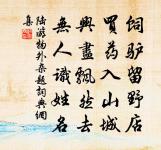 饲驴留野店
买药入山城
兴尽飘然去
无人识姓名
陆游物外杂题词典网
集